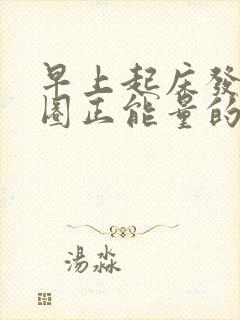 早上起床發
圈正能量的
湯淼